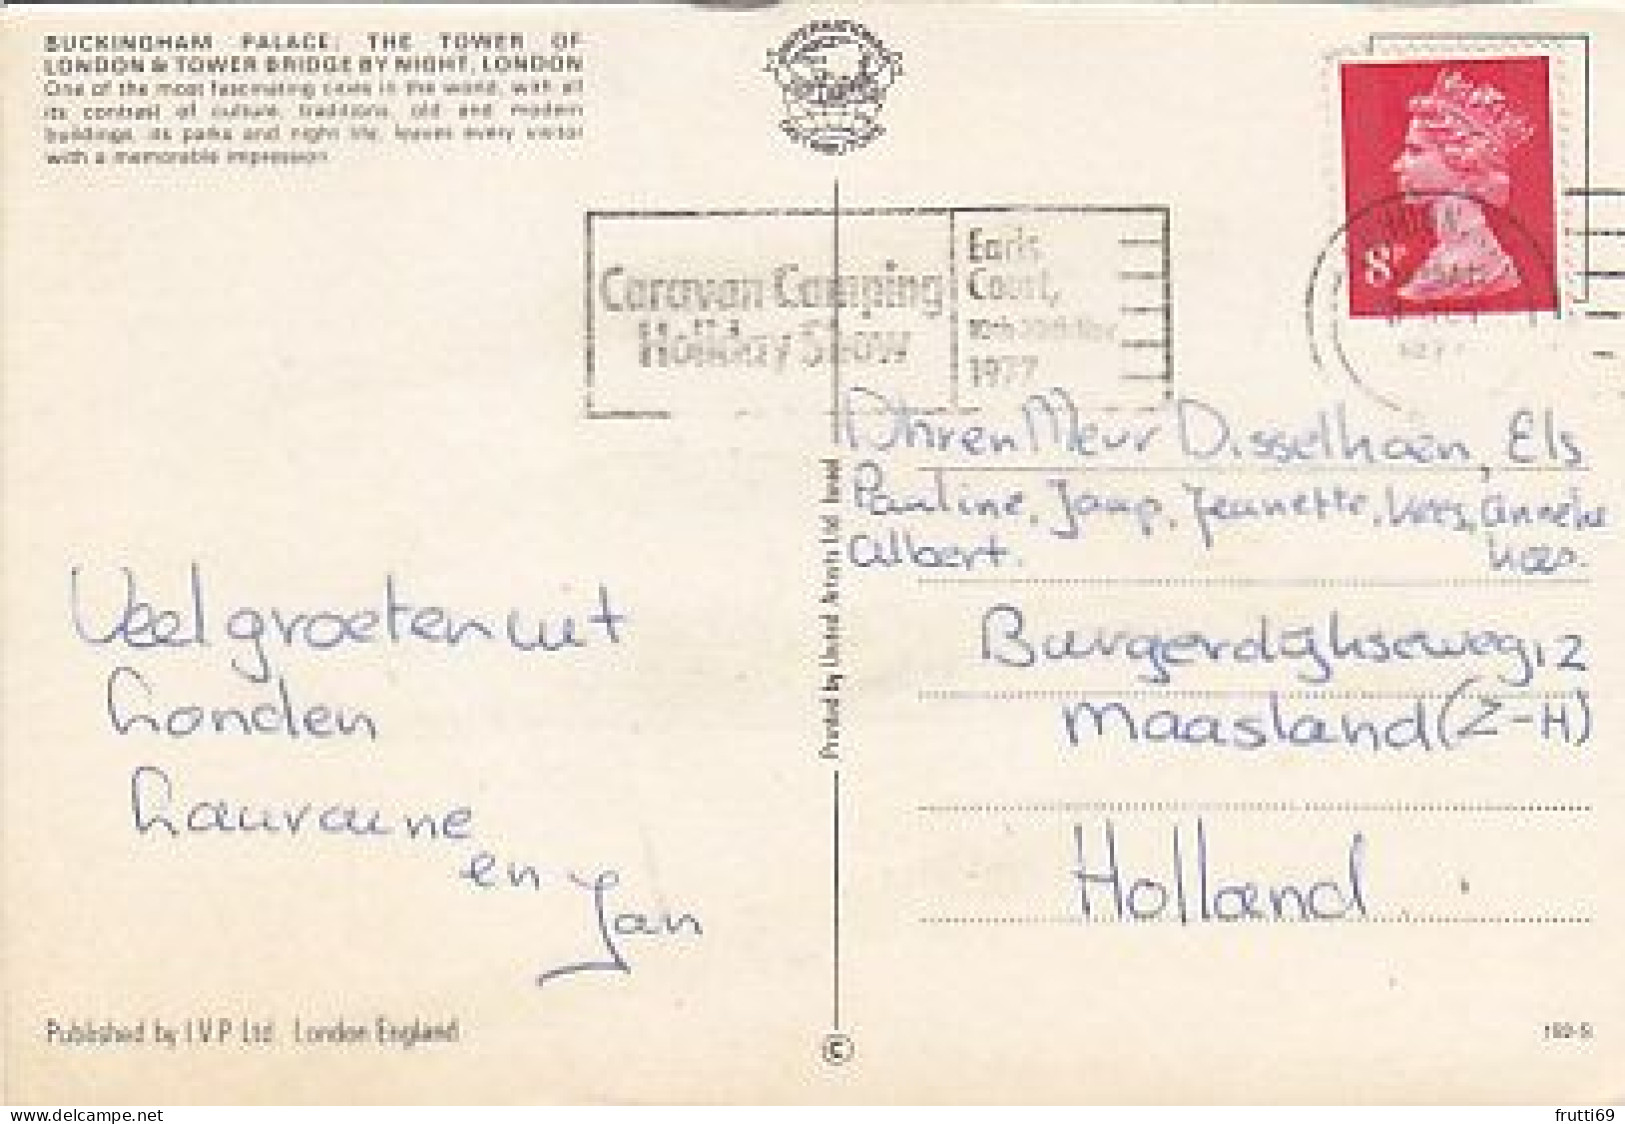 BUCKINGHAM PALACE; THE TOWER OF
LONDON & TOWER BRIDGE BY NIGHT, LONDON
One of the most fascinating cities in the world, with all
its contrast of culture, traditions, old and modern
buildings, its parks and night life, leaves every visitor
with a memorable impression
INTERNATIONAL
DISTRIBUTOR
8P
Caravan Camping
Holiday Show
Earls
Court,
1977
Meur Disselhoen, Els
Pauline, Jaap, Jeanette, Kees, Anneke
Albert. Kees.
Burgerdijkseweg 12
Maasland (Z-H)
Holland
Veel groeten uit
Londen
Lauraine
en Jan
Printed by United Artists Ltd Israel
Published by I.V.P Ltd London England
©
frutti69
www.delcampe.net